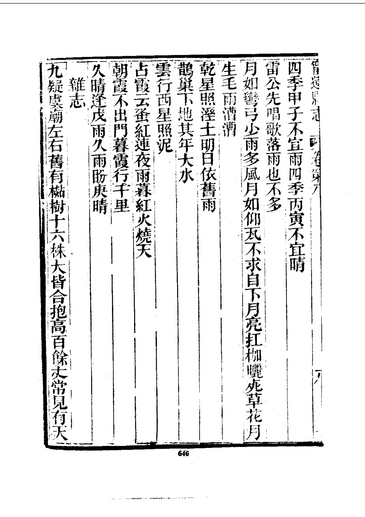 寧遠縣志 卷第八
四季甲子不宜雨四季丙寅不宜晴
雷公先唱歌落雨也不多
月如彎弓少雨多風月如仰瓦不求自下月亮扛枷曬死草花月
生毛雨漕漕
乾星照溼土明日依舊雨
鵲巢下地其年大水
雲行西星照泥
占霞云蚤紅連夜雨暮紅火燒天
朝霞不出門暮霞行千里
久晴逢戊雨久雨盼庚晴
雜志
九疑虞廟左右舊有樹十六株大皆合抱高百餘丈常見有天
646